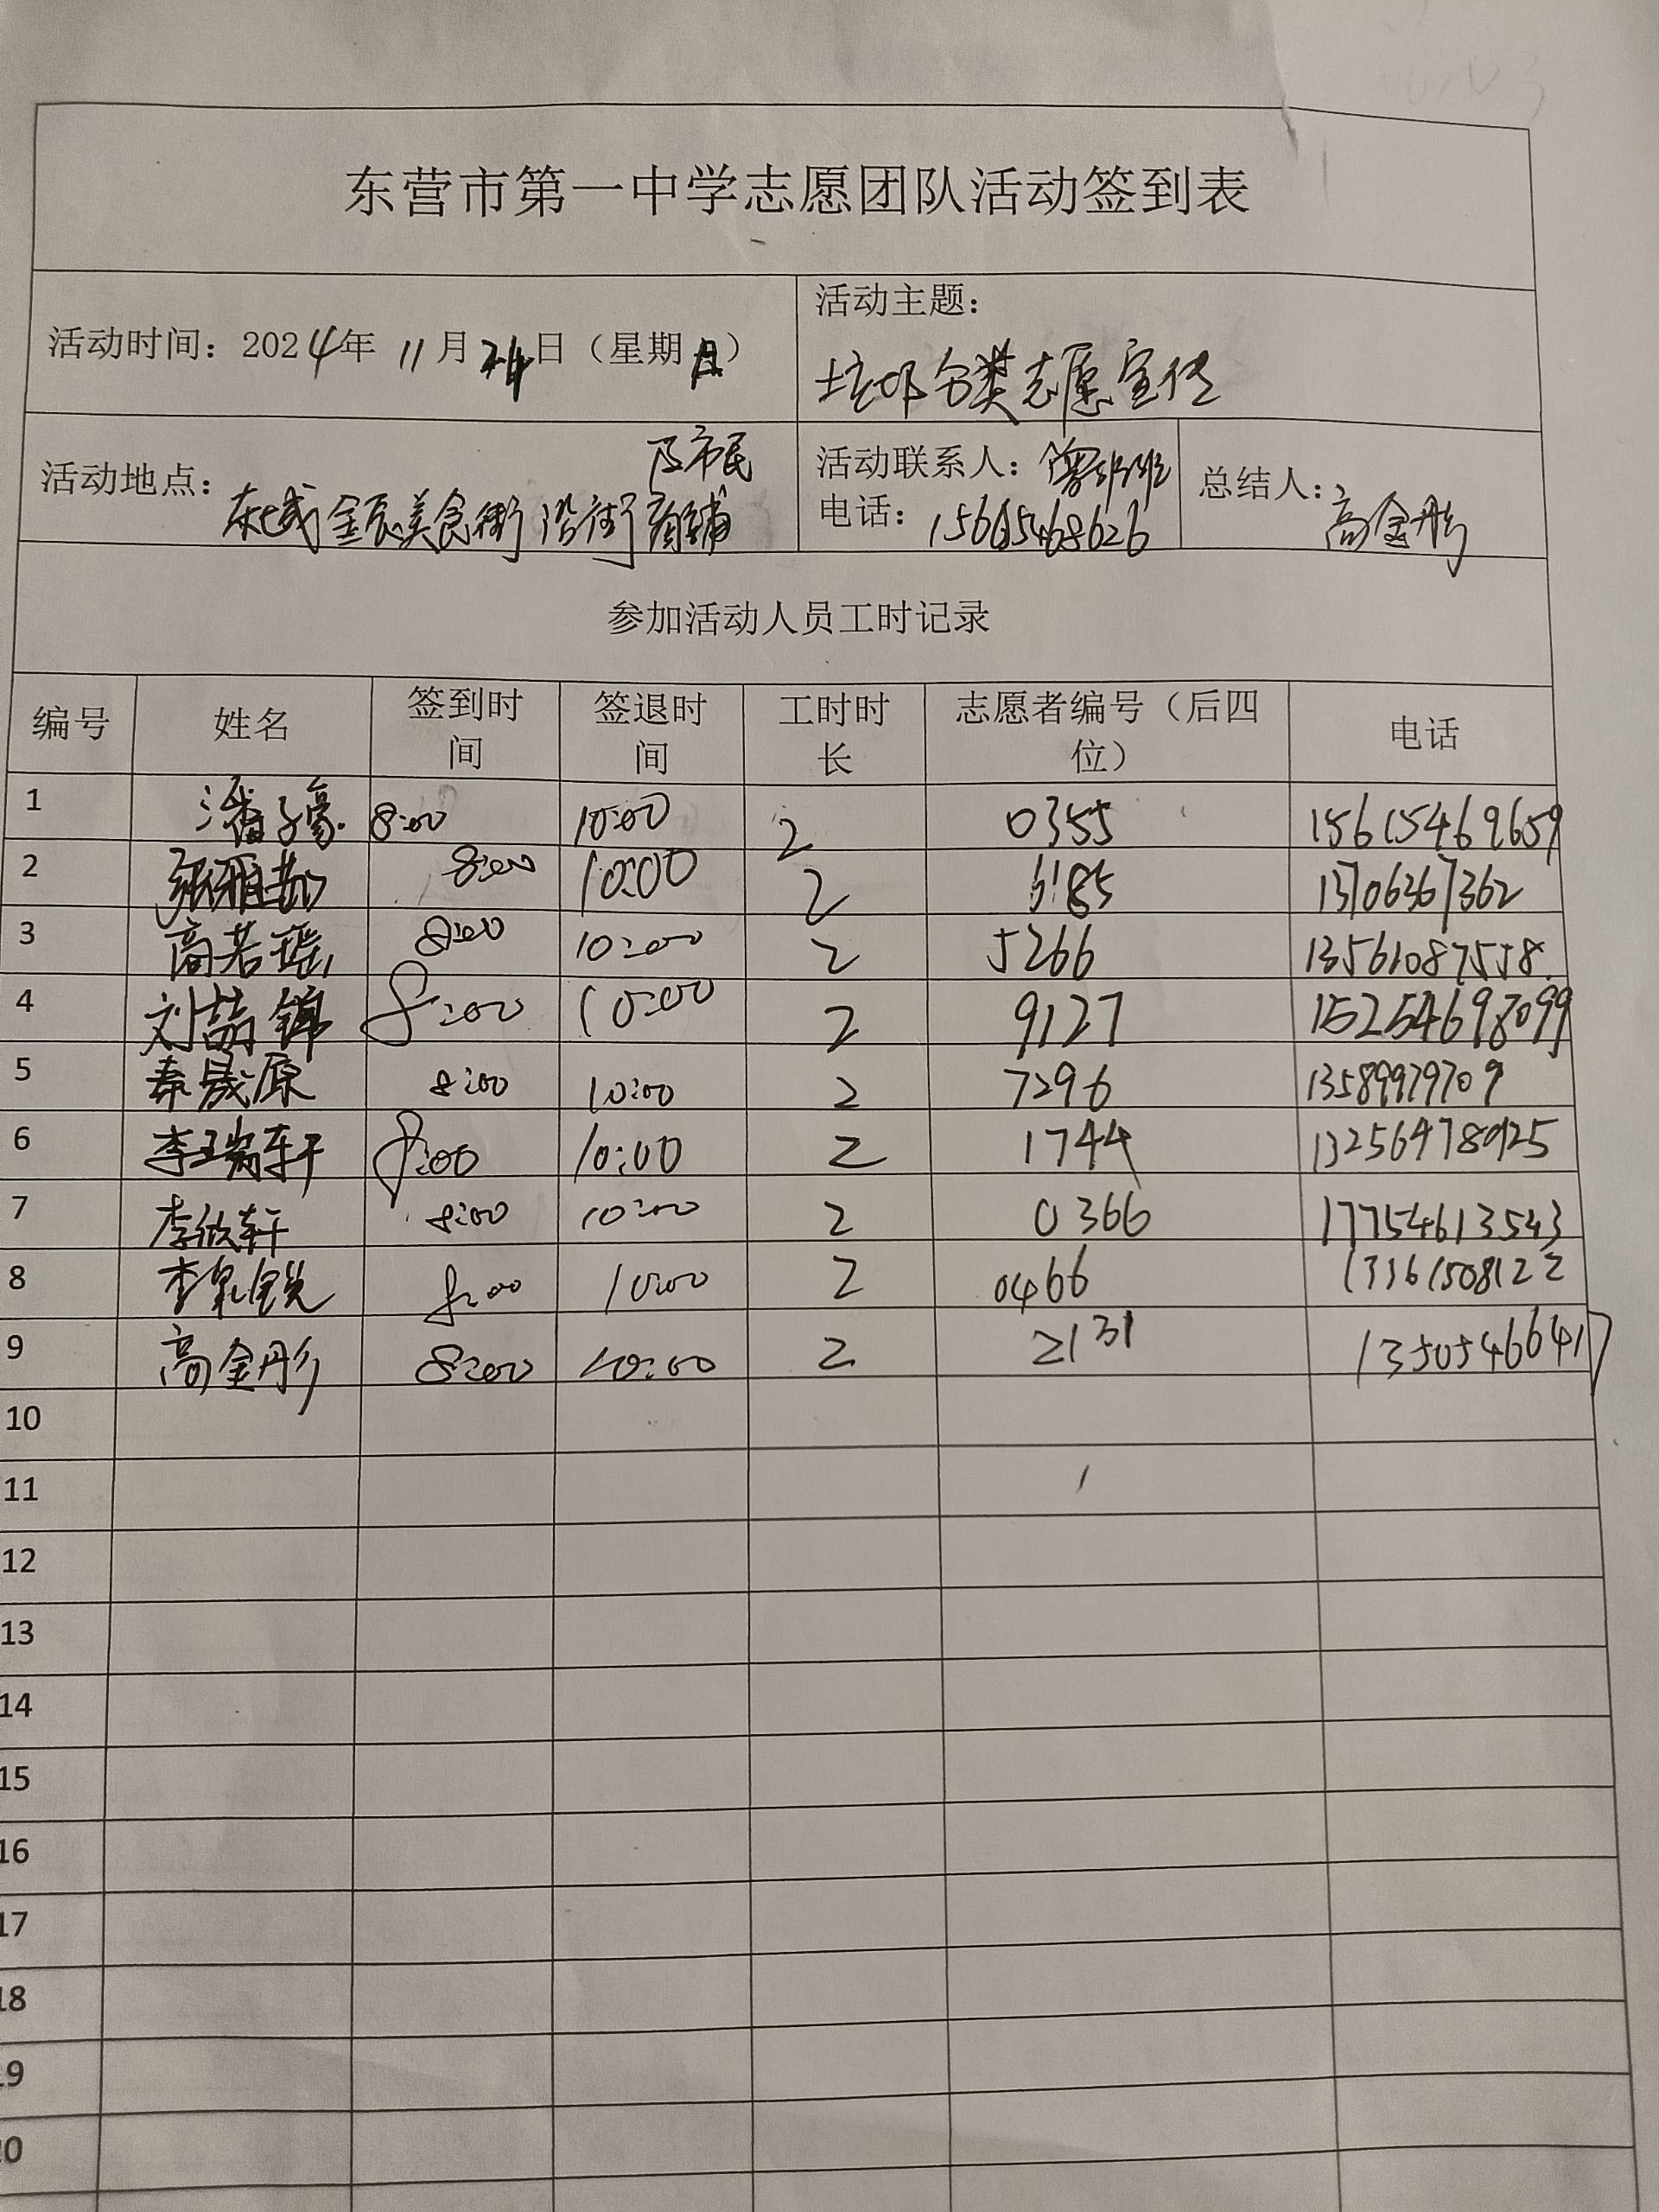 东营市第一中学志愿团队活动签到表
活动时间：2024年 11月24日（星期日）
活动主题：
垃圾分类志愿宣传
活动地点：
及市民
东城金辰美食街沿街商铺
活动联系人：
电话：15665468626
总结人：高金彤
参加活动人员工时记录
编号 姓名 签到时间 签退时间 工时时长 志愿者编号（后四位） 电话
1 潘子豪 8:00 10:00 2 0355 15615469659
2 张雅茹 8:00 10:00 2 6185 13706367362
3 高若瑶 8:00 10:00 2 5266 13561087558
4 刘喆锦 8:00 10:00 2 9127 15254698099
5 秦晟原 8:00 10:00 2 7296 13589979709
6 李瑞轩 8:00 10:00 2 1744 13256478925
7 李欣轩 8:00 10:00 2 0366 17754613543
8 李 锐 8:00 10:00 2 0466 13361508122
9 高金彤 8:00 10:00 2 2131 13505466417
10
11
12
13
14
15
16
17
18
19
20